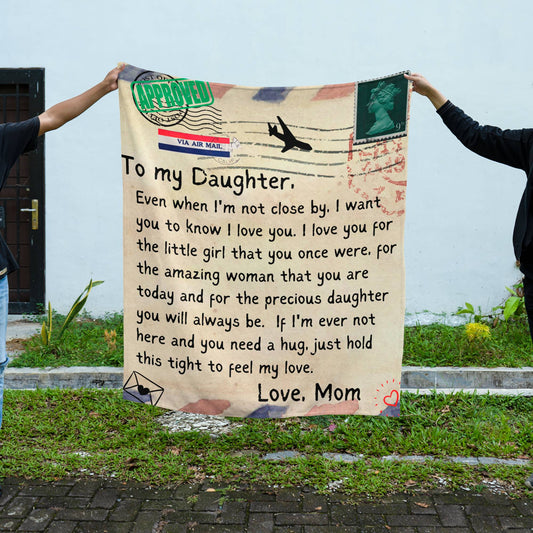 APPROVED
VIA AIR MAIL
9D
To my Daughter,
Even when I'm not close by, I want
you to know I love you. I love you for
the little girl that you once were, for
the amazing woman that you are
today and for the precious daughter
you will always be. If I'm ever not
here and you need a hug, just hold
this tight to feel my love.
Love, Mom